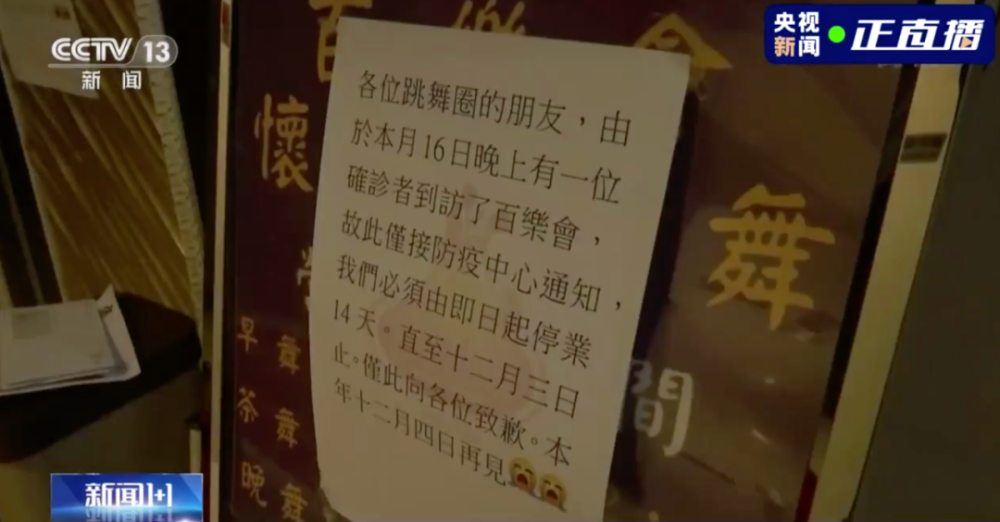 CCTV 13
新闻
央视
新闻
正直播
百樂會
懷
舞
各位跳舞圈的朋友，由
於本月16日晚上有一位
確診者到訪了百樂會，
故此僅接防疫中心通知，
我們必須由即日起停業
14天。直至十二月三日
止。僅此向各位致歉。本
年十二月四日再見😭😭
間
早舞
茶舞
晚舞
新闻1+1